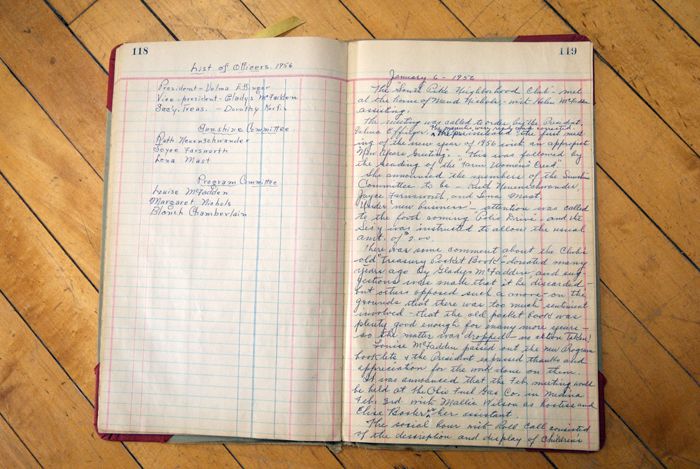 118
List of Officers 1956
President - Velma Effinger
Vice-president - Gladys McFadden
Sec'y-Treas. - Dorothy
Sunshine Committee
Ruth Neuenschwander
Joyce Farnsworth
Lena Mast
Program Committee
Louise McFadden
Margaret Nichols
Blanch Chamberlain
119
January 6 - 1956
The South Pike Neighborhood Club - met
at the home of Maud - with Helen McFadden
assisting.
The meeting was called to order by the President,
Velma Effinger the first meet-
The minutes were read and
ing of the new year of 1956 with an appropriate
New Years Greeting. This was followed by
the reading of the Farm Women's Creed.
She announced the members of the Sunshine
Committee to be - Ruth Neuenschwander,
Joyce Farnsworth and Lena Mast.
Under new business - attention was called
to the forth coming Polio Drive - and the
Sec'y was instructed to allow the usual
amt. of $2.00
There was some comment about the Club's
old Treasury Pocket Book - donated many
years ago by Gladys McFadden, and sug-
gestions were made that it be discarded -
but others opposed such a move - on the
grounds that there was too much sentiment
involved - that the old pocket book was
plenty good enough for many more years -
so the matter was dropped - no action taken!
Louise McFadden passed out the new Program
booklets & the President expressed thanks and
appreciation for the work done on them.
It was announced that the Feb. meeting would
be held at the Ohio Fuel Gas Co. in Medina
Feb. 3rd with Mallie Wilson as hostess and
Elise as her assistant.
The social hour with Roll Call consisted
of the description and display of Children's